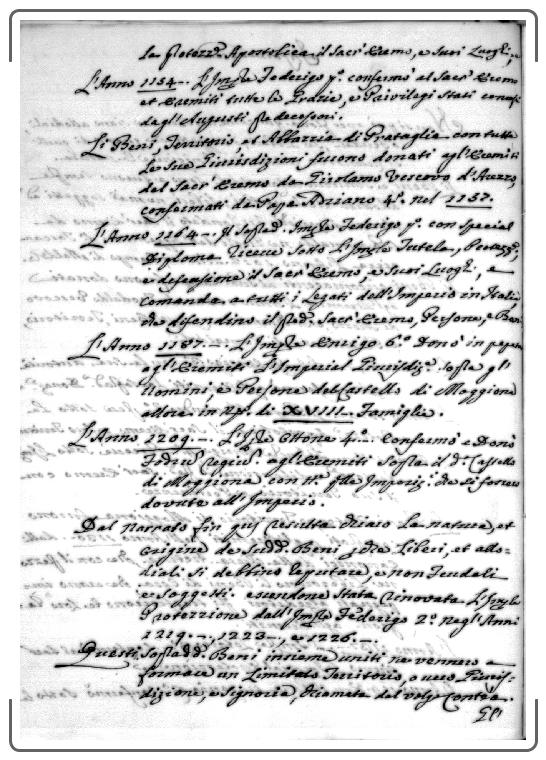 la Protezz.e Apostolica il Sacr' Eremo, e Suoi Luoghi,
L'Anno 1154 -. L'Imp.re Federigo p.o confermò al Sacr' Eremo
et Eremiti tutte le Grazie, e Privilegi stati concessi
dagl'Augusti predecessori.
Li Beni, Territorio et Abbazzia di Prataglia con tutte
le Sue Giurisdizioni furono donati agl'Eremiti
del Sacr' Eremo da Girolamo Vescovo d'Arezzo,
confermati da Papa Adriano 4.o nel 1157.
L'Anno 1164 -. Il Imp.re Federigo p.o con special
Diploma riceve sotto l'Imp.le Tutela, Protezz.e,
e difensione il Sacr' Eremo, e Suoi Luoghi, e
comanda a tutti i Legati dell'Imperio in Italia,
che difendino il Sacr' Eremo, Persone, e Beni
L'Anno 1187 -. L'Imp.re Enrigo 6.o Donò in perpetuo
agl'Eremiti l'Imperial Giurisdiz.e sopra gl'
Uomini, e Persone del Castello di Moggiona
allora in N.o di XVIII Famiglie.
L'Anno 1209 -. L'Imp.re Ottone 4.o Confermò e Donò
agl'Eremiti sopra il d.o Castello
di Moggiona con che si fossero
dovute all'Imperio.
Dal Narrato fin qui resulta chiaro la natura, et
origine de Sudd. Beni che Liberi, et allo=
diali si debbino reputare, e non Feudali
e Soggetti. essendone Stata rinovata l'Imp.le
Protezzione dall'Imp.re Federigo 2.o negl'Anni
1219 -., 1223 -, e 1226 -.
Questi Beni insieme uniti ne vennero a
formare un Limitato Territorio, o vero Giuris=
dizione, e Signoria, chiamata dal volg. Contea.